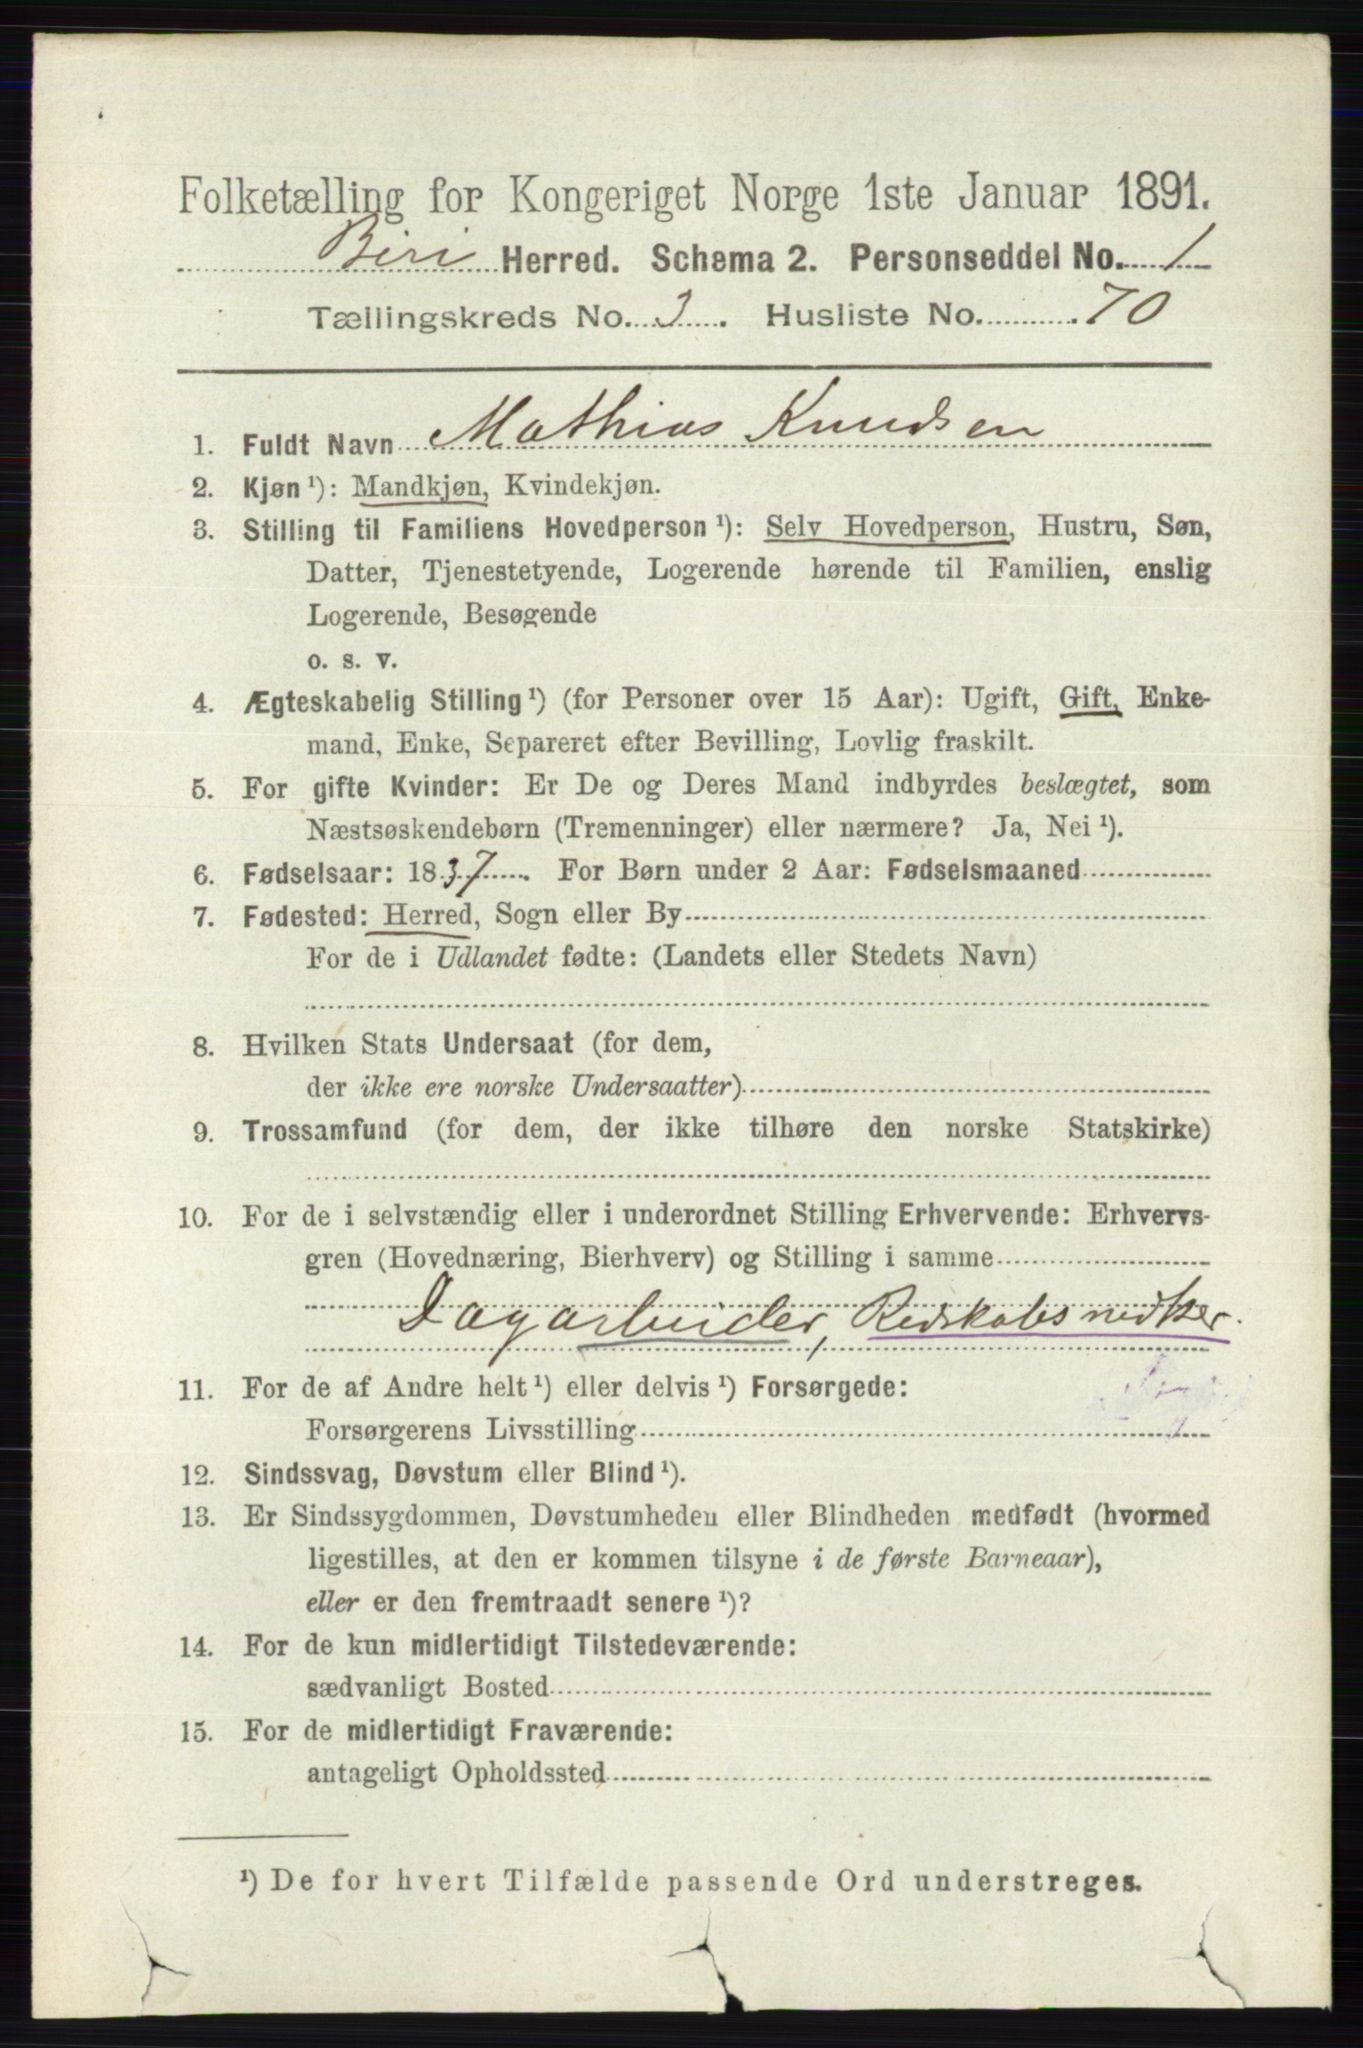 Folketælling for Kongeriget Norge 1ste Januar 1891.
Biri Herred. Schema 2. Personseddel No. 1
Tællingskreds No. 3. Husliste No. 70
1. Fuldt Navn Mathias Knudsen
2. Kjøn ¹): Mandkjøn, Kvindekjøn.
3. Stilling til Familiens Hovedperson ¹): Selv Hovedperson, Hustru, Søn,
Datter, Tjenestetyende, Logerende hørende til Familien, enslig
Logerende, Besøgende
o. s. v.
4. Ægteskabelig Stilling ¹) (for Personer over 15 Aar): Ugift, Gift, Enke-
mand, Enke, Separeret efter Bevilling, Lovlig fraskilt.
5. For gifte Kvinder: Er De og Deres Mand indbyrdes beslægtet, som
Næstsøskendebørn (Tremenninger) eller nærmere? Ja, Nei ¹).
6. Fødselsaar: 1837. For Børn under 2 Aar: Fødselsmaaned
7. Fødested: Herred, Sogn eller By
For de i Udlandet fødte: (Landets eller Stedets Navn)
8. Hvilken Stats Undersaat (for dem,
der ikke ere norske Undersaatter)
9. Trossamfund (for dem, der ikke tilhøre den norske Statskirke)
10. For de i selvstændig eller i underordnet Stilling Erhvervende: Erhvervs-
gren (Hovednæring, Bierhverv) og Stilling i samme
Dagarbeider, Redskabsnedker.
11. For de af Andre helt ¹) eller delvis ¹) Forsørgede:
Forsørgerens Livsstilling
12. Sindssvag, Døvstum eller Blind ¹).
13. Er Sindssygdommen, Døvstumheden eller Blindheden medfødt (hvormed
ligestilles, at den er kommen tilsyne i de første Barneaar),
eller er den fremtraadt senere ¹)?
14. For de kun midlertidigt Tilstedeværende:
sædvanligt Bosted
15. For de midlertidigt Fraværende:
antageligt Opholdssted
¹) De for hvert Tilfælde passende Ord understreges.